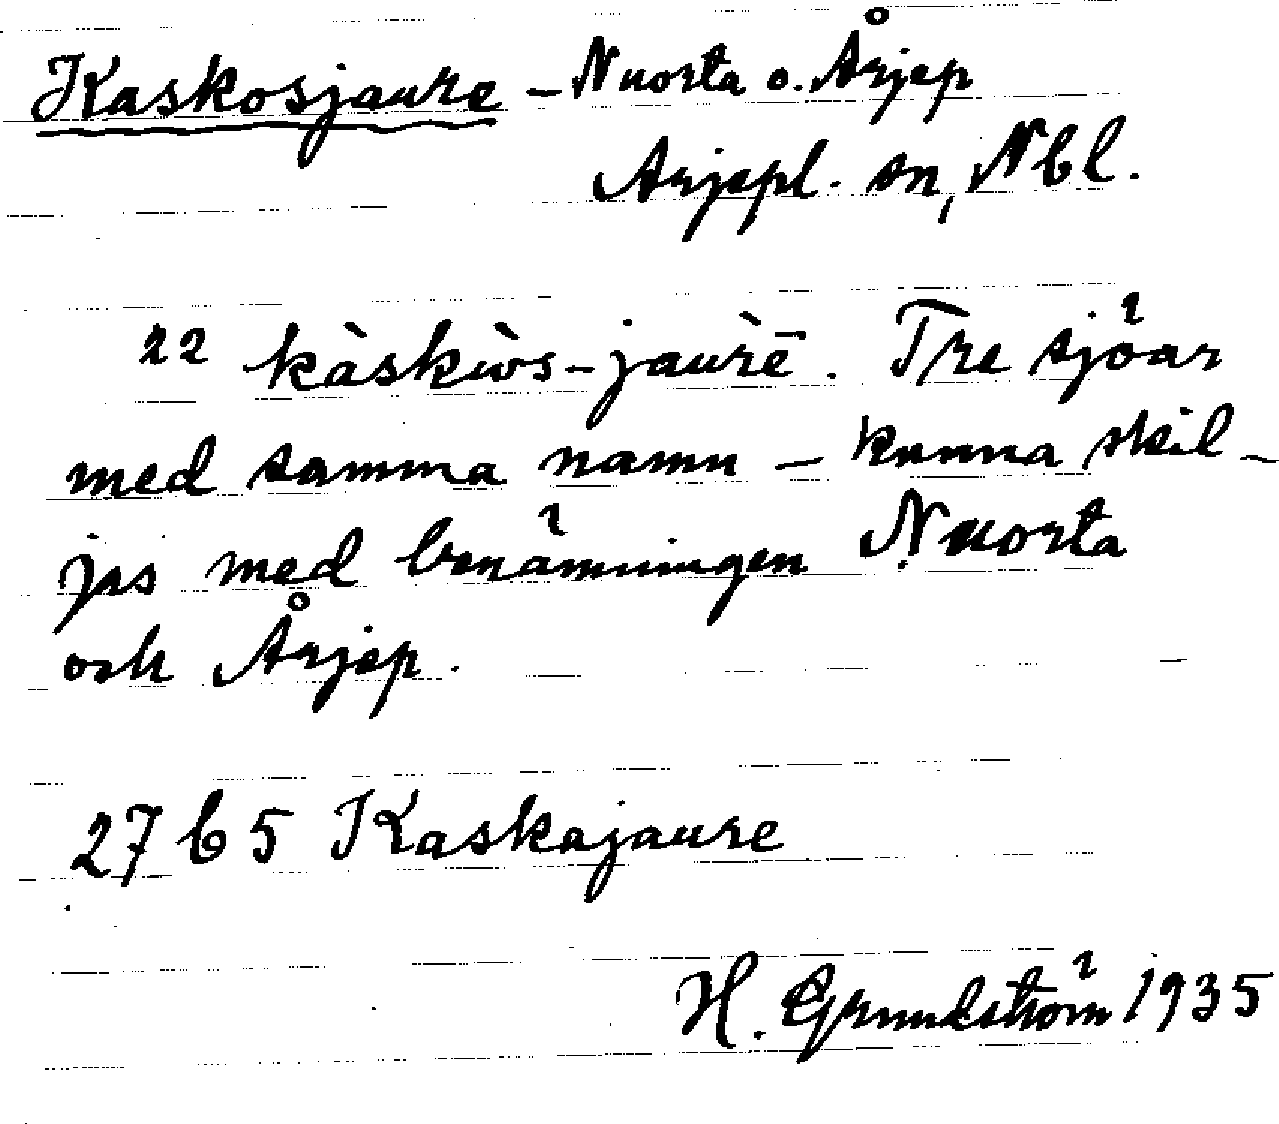 Kaskosjaure – Nuorta o. Årjep
Arjepl. sn, Nbl.
22 kàskùs-jaùrē. Tre sjöar
med samma namn – kunna skil-
jas med benämningen Nuorta
och Årjep.
27 b 5 Kaskajaure
H. Grundström 1935